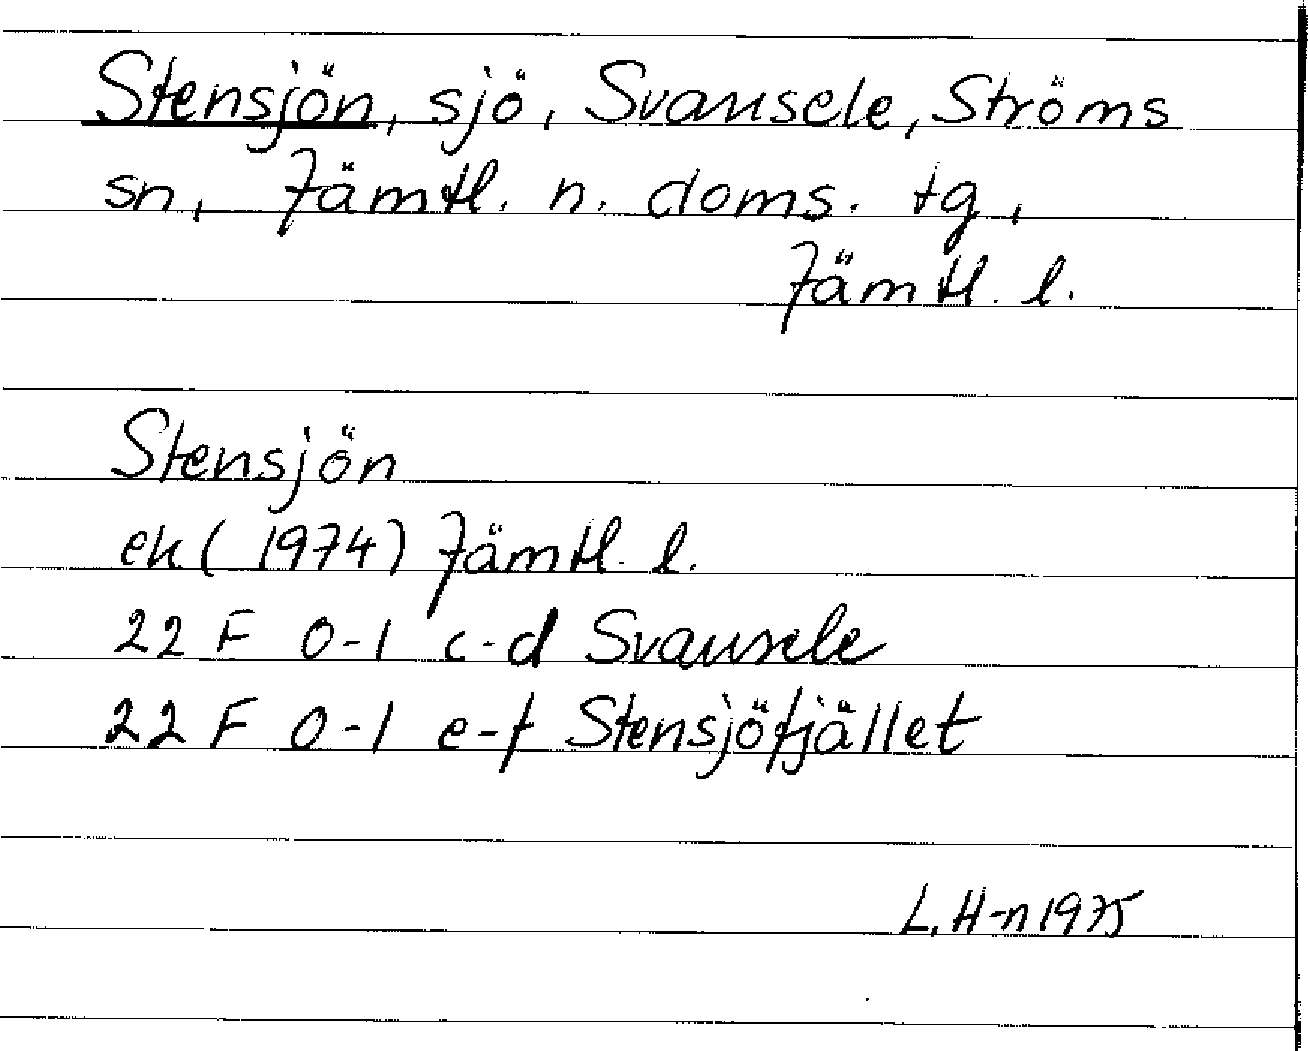 Stensjön, sjö, Svansele, Ströms
sn, Jämtl. n. doms. tg,
Jämtl. l.
Stensjön
ek (1974) Jämtl. l.
22 F 0-1 c-d Svansele
22 F 0-1 e-f Stensjöfjället
L. H-n 1975